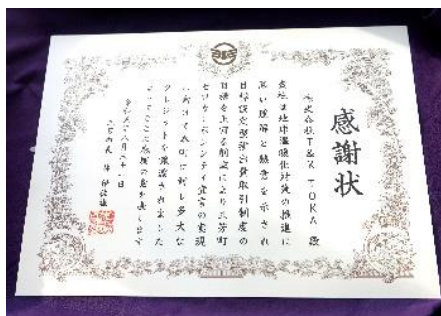 感謝状
株式会社T&K TOKA 殿
貴社は地球温暖化対策の推進に
深い理解と熱意を示され
目標設定型排出量取引制度の
目標を上回る削減により三芳町
ゼロカーボンシティ宣言の実現
に向けて本町に対し多大な
クレジットを譲渡されました
よってここに感謝の意を表します
三芳町長 林 伊佐雄